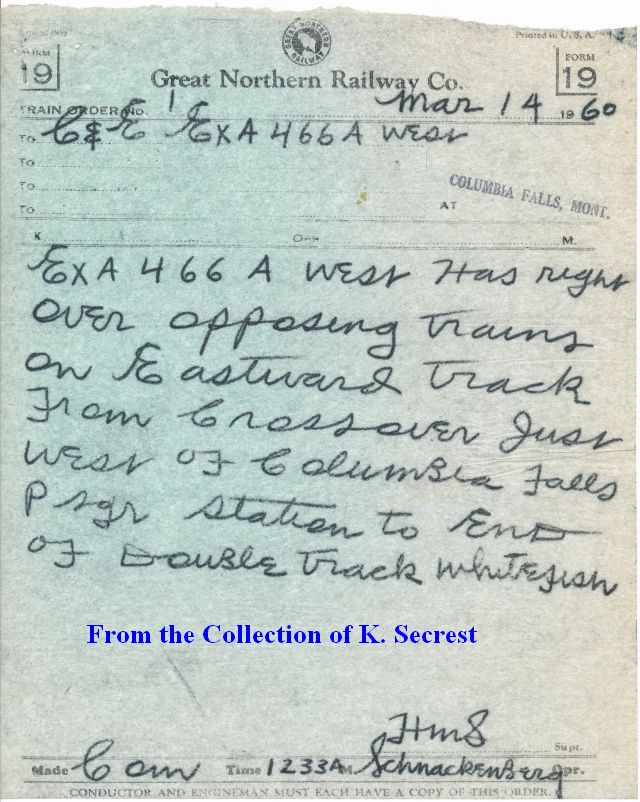 Printed in U. S. A.
GREAT NORTHERN RAILWAY
FORM
19
Great Northern Railway Co.
FORM
19
TRAIN ORDER No. 1 Mar 14 1960
TO C&E ExA 466 A West
TO
TO
TO AT COLUMBIA FALLS, MONT.
X OPR M.
ExA 466 A West Has right
over opposing trains
on Eastward track
From Crossover Just
West of Columbia Falls
Psgr station to End
of Double track Whitefish
From the Collection of K. Secrest
HMS Supt.
Made Com Time 1233A M. Schnackenberg Opr.
CONDUCTOR AND ENGINEMAN MUST EACH HAVE A COPY OF THIS ORDER.